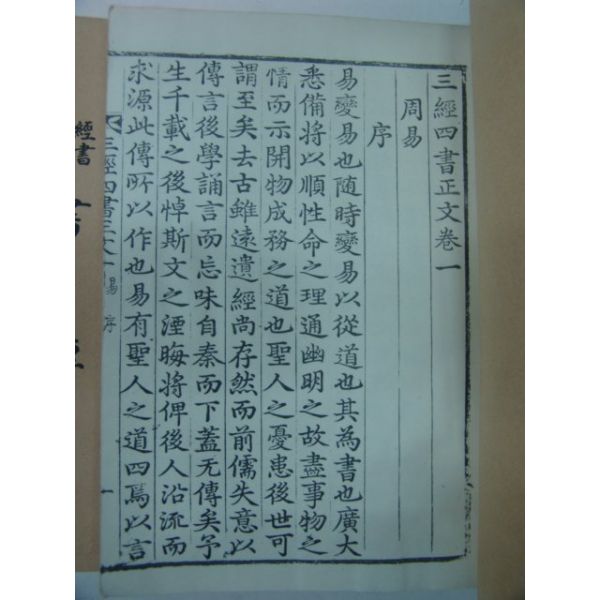 三經四書正文卷一
周易
序
易變易也隨時變易以從道也其為書也廣大
悉備將以順性命之理通幽明之故盡事物之
情而示開物成務之道也聖人之憂患後世可
謂至矣去古雖遠遺經尚存然而前儒失意以
傳言後學誦言而忘味自秦而下蓋无傳矣予
生千載之後悼斯文之湮晦將俾後人沿流而
求源此傳所以作也易有聖人之道四焉以言
三經四書正文一 易 序 一
經書